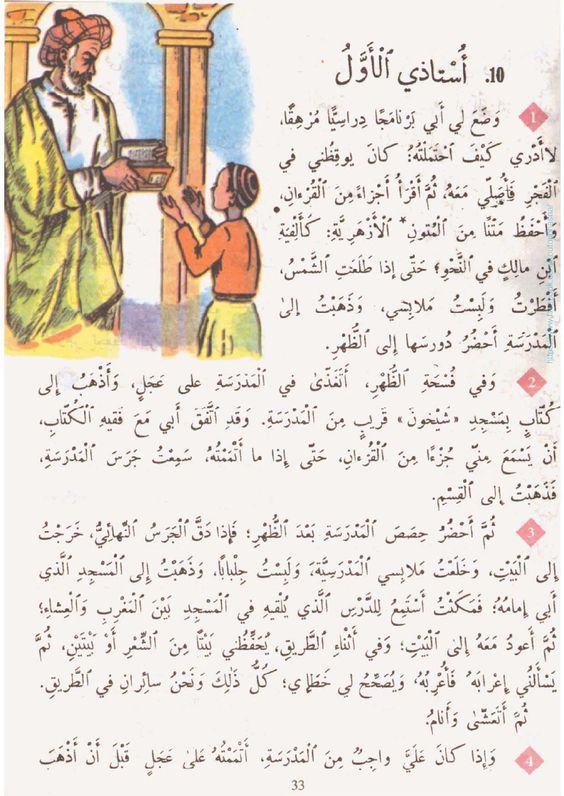 10. أُسْتاذي ٱلْأَوَّلُ
1 وَضَعَ لي أَبي بَرْنامَجًا دِراسِيًّا مُرْهِقًا،
لا أَدْري كَيْفَ ٱحْتَمَلْتُهُ؛ كانَ يوقِظُني في
ٱلْفَجْرِ فَأُصَلّي مَعَهُ، ثُمَّ أَقْرَأُ أَجْزاءً مِنَ ٱلْقُرْءانِ،
وَأَحْفَظُ مَتْنًا مِنَ ٱلْمُتونِ* ٱلْأَزْهَرِيَّةِ: كَأَلْفِيَّةِ
ٱبْنِ مالِكٍ في ٱلنَّحْوِ؛ حَتّى إِذا طَلَعَتِ ٱلشَّمْسُ،
أَفْطَرْتُ وَلَبِسْتُ مَلابِسي، وَذَهَبْتُ إِلى
ٱلْمَدْرَسَةِ أَحْضُرُ دُروسَها إِلى ٱلظُّهْرِ.
2 وَفي فُسْحَةِ ٱلظُّهْرِ، أَتَغَذّى في ٱلْمَدْرَسَةِ عَلى عَجَلٍ، وَأَذْهَبُ إِلى
كُتّابٍ بِمَسْجِدِ «شَيْخونَ» قَريبٍ مِنَ ٱلْمَدْرَسَةِ. وَقَدِ ٱتَّفَقَ أَبي مَعَ فَقيهِ ٱلْكُتّابِ،
أَنْ يَسْمَعَ مِنّي جُزْءًا مِنَ ٱلْقُرْءانِ، حَتّى إِذا ما أَتْمَمْتُهُ، سَمِعْتُ جَرَسَ ٱلْمَدْرَسَةِ،
فَذَهَبْتُ إِلى ٱلْقِسْمِ.
3 ثُمَّ أَحْضُرُ حِصَصَ ٱلْمَدْرَسَةِ بَعْدَ ٱلظُّهْرِ؛ فَإِذا دَقَّ ٱلْجَرَسُ ٱلنِّهائِيُّ، خَرَجْتُ
إِلى ٱلْبَيْتِ، وَخَلَعْتُ مَلابِسي ٱلْمَدْرَسِيَّةَ، وَلَبِسْتُ جِلْبابًا، وَذَهَبْتُ إِلى ٱلْمَسْجِدِ ٱلَّذي
أَبي إِمامُهُ؛ فَمَكَثْتُ أَسْتَمِعُ لِلدَّرْسِ ٱلَّذي يُلْقيهِ في ٱلْمَسْجِدِ بَيْنَ ٱلْمَغْرِبِ وَٱلْعِشاءِ؛
ثُمَّ أَعودُ مَعَهُ إِلى ٱلْبَيْتِ؛ وَفي أَثْناءِ ٱلطَّريقِ، يُحَفِّظُني بَيْتًا مِنَ ٱلشِّعْرِ أَوْ بَيْتَيْنِ، ثُمَّ
يَسْأَلُني إِعْرابَهُ فَأُعْرِبُهُ، وَيُصَحِّحُ لي خَطَإي؛ كُلُّ ذَلِكَ وَنَحْنُ سائِرانِ في ٱلطَّريقِ.
ثُمَّ أَتَعَشّى وَأَنامُ.
4 وَإِذا كانَ عَلَيَّ واجِبٌ مِنَ ٱلْمَدْرَسَةِ، أَتْمَمْتُهُ عَلى عَجَلٍ قَبْلَ أَنْ أَذْهَبَ
33